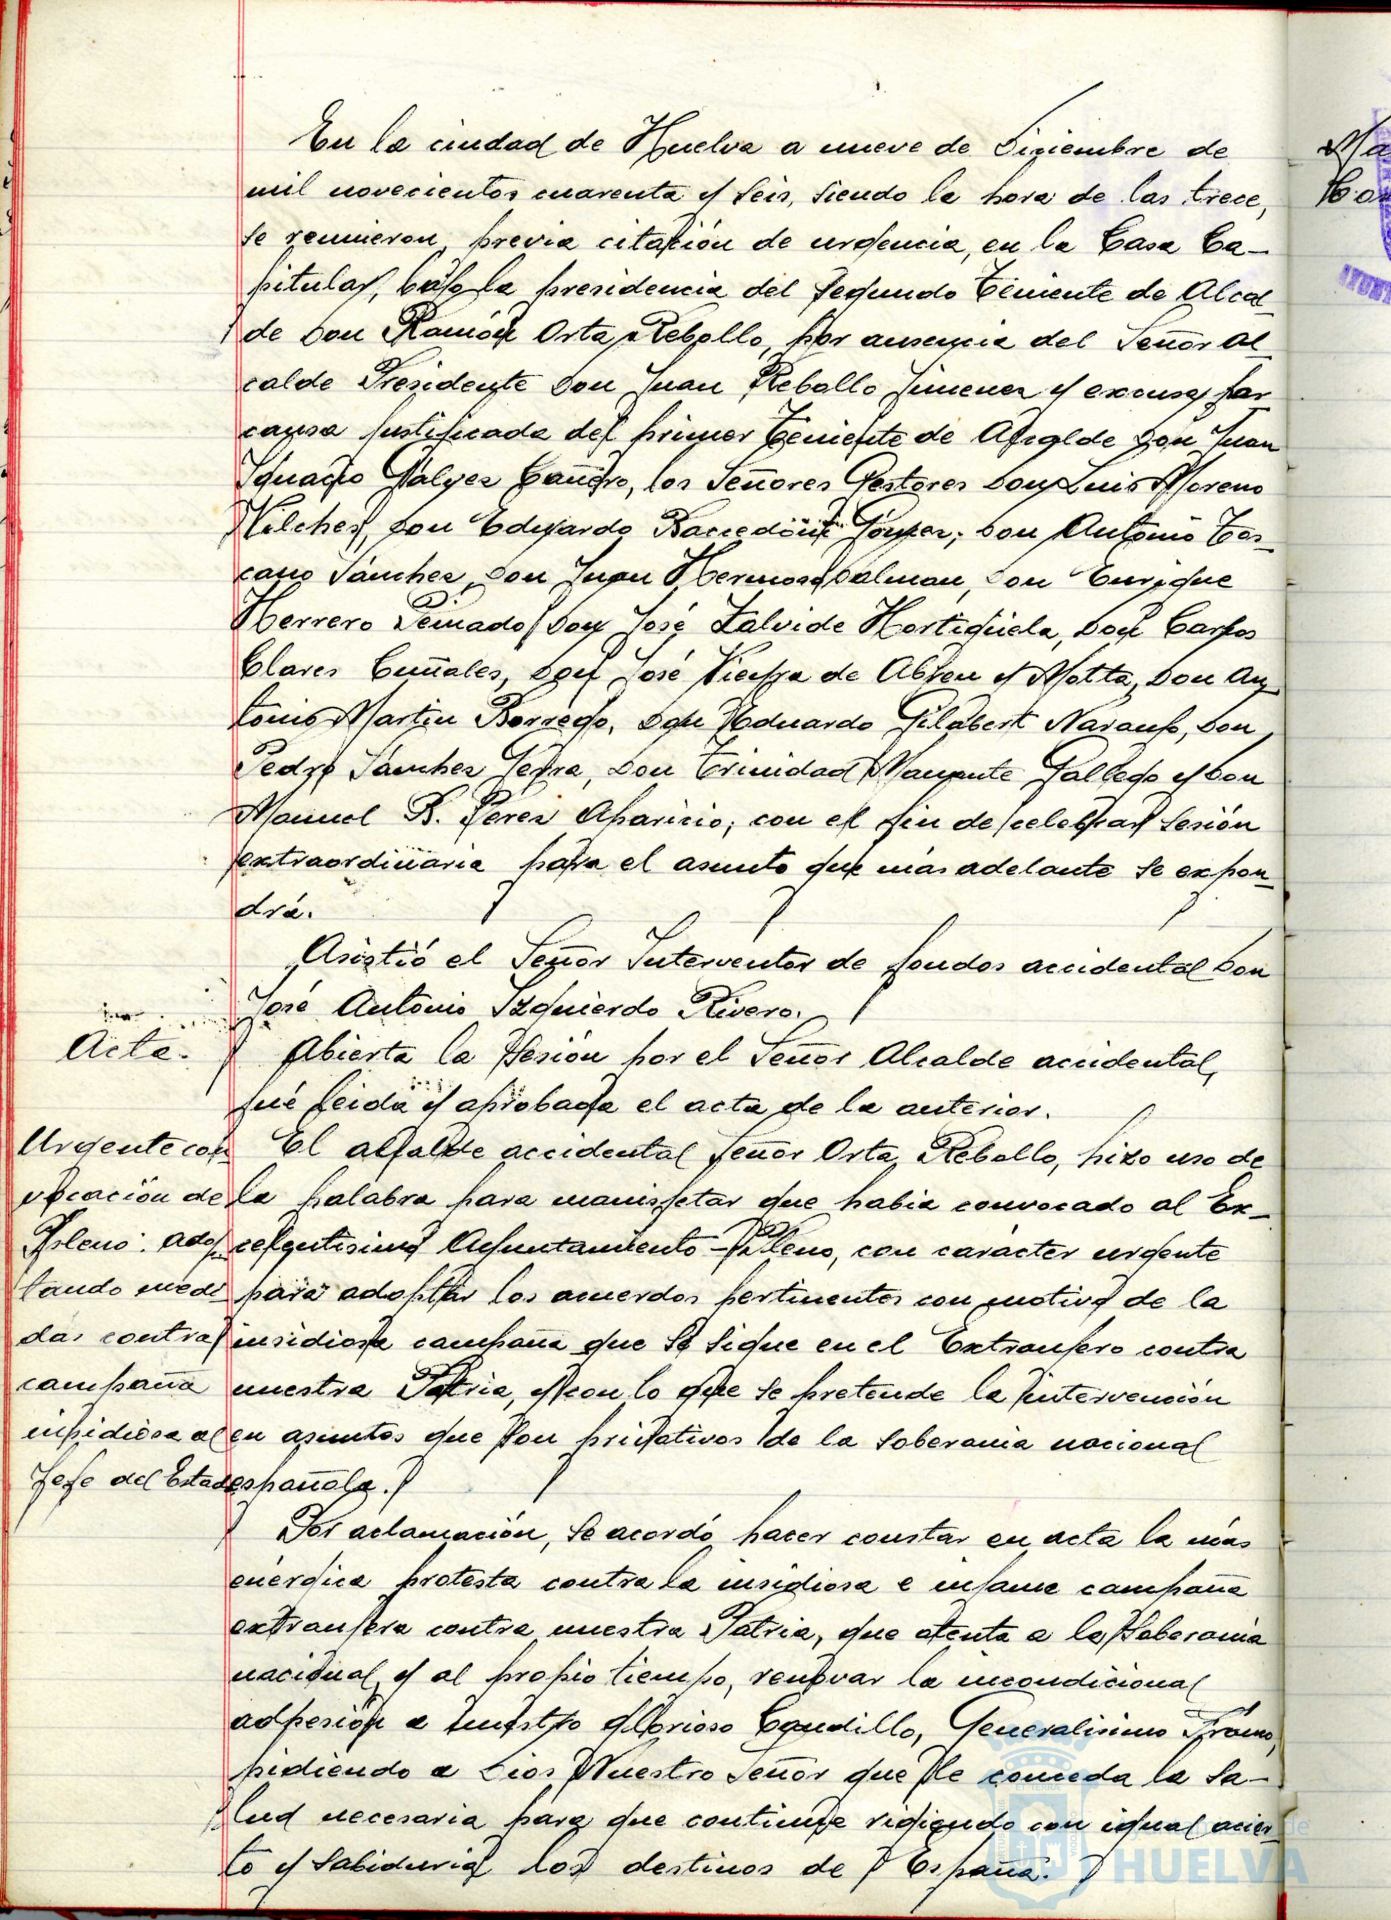 En la ciudad de Huelva a nueve de Diciembre de
mil novecientos cuarenta y seis, siendo la hora de las trece,
se reunieron, previa citación de urgencia, en la Casa Ca-
pitular, bajo la presidencia del Segundo Teniente de Alcal-
de Don Ramón Orta Rebollo, por ausencia del Señor Al-
calde Presidente Don Juan Rebollo Jimenez y excusa por
causa justificada del primer Teniente de Alcalde Don Juan
Ignacio Gálvez Cañero, los Señores Gestores Don Luis Moreno
Vilches, Don Eduardo Gómez; Don Antonio Tos-
cano Sánchez, Don Juan Hermoso Dalman, Don Enrique
Herrero Peinado, Don José Zalvide Hortigüela, Don Carlos
Clares Cuñales, Don José Vieyra de Abreu y Motta, Don An-
tonio Martin Borrego, Don Eduardo Gilabert Naranjo, Don
Pedro Sánchez Serra, Don Trinidad Gallego y Don
Manuel B. Perez Aparicio; con el fin de celebrar sesión
extraordinaria para el asunto que más adelante se expon-
drá.
Asistió el Señor Interventor de fondos accidental Don
José Antonio Izquierdo Rivero.
Acta.
Abierta la Sesión por el Señor Alcalde accidental,
fué leida y aprobada el acta de la anterior.
Urgente con
vocación de
Pleno: adop
tando medi
das contra
campaña
insidiosa al
Jefe del Estado
El alcalde accidental Señor Orta Rebollo, hizo uso de
la palabra para manisfetar que habia convocado al Ex-
celentisimo Ayuntamiento-Pleno, con carácter urgente
para adoptar los acuerdos pertinentes con motivo de la
insidiosa campaña que se sigue en el Extranjero contra
nuestra Patria, y con lo que se pretende la intervención
en asuntos que son privativos de la soberania nacional
española.
Por aclamación, se acordó hacer constar en acta la más
enérgica protesta contra la insidiosa e infame campaña
extranjera contra nuestra Patria, que atenta a la Soberania
nacional, y al propio tiempo, renovar la incondicional
adhesión a nuestro glorioso Caudillo, Generalisimo Franco,
pidiendo a Dios Nuestro Señor que le conceda la Sa-
lud necesaria para que continue rigiendo con igual acier-
to y Sabiduria los destinos de España.
HUELVA